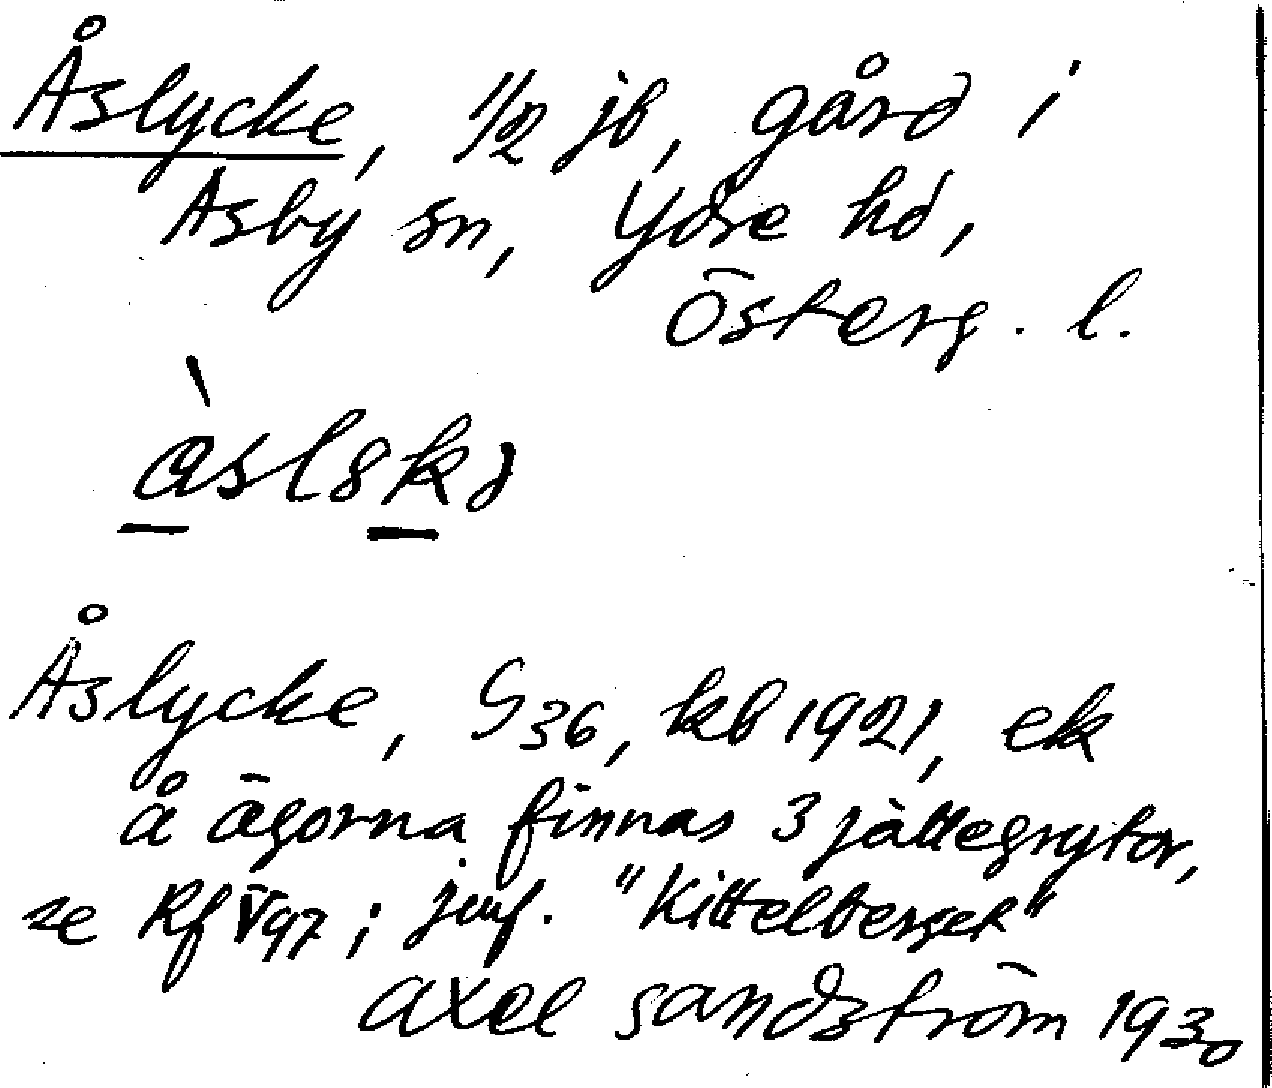 Åslycke, 1/2 jb, gård i
Asby sn, Ydre hd,
Österg. l.
Åslycke, G36, kb 1921, ek
å ägorna finnas 3 jättegrytor,
se Rf V97; jmf. "Kittelberget"
Axel Sandström 1930